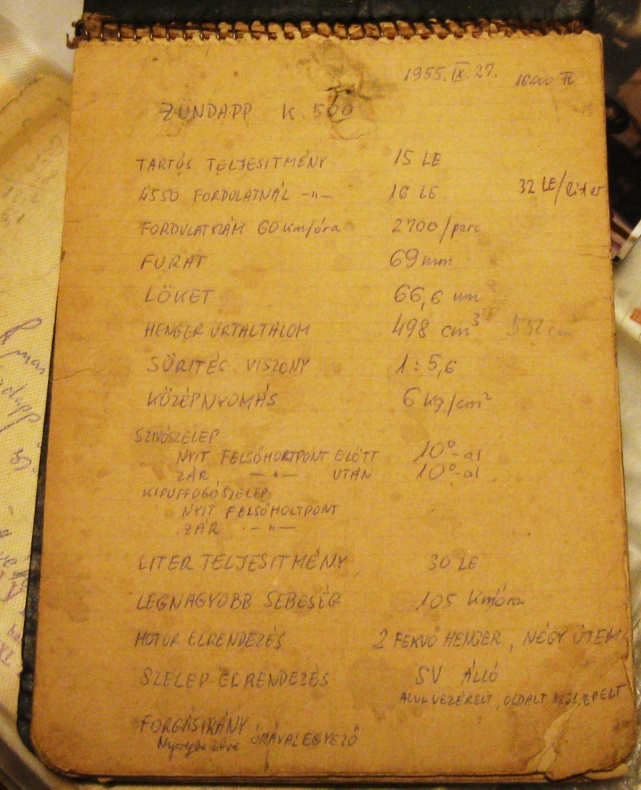 1955. IX. 27. 16000 Ft
ZÜNDAPP K. 500
TARTÓS TELJESITMÉNY 15 LE
4550 FORDULATNÁL -"- 16 LE 32 LE/liter
FORDULATSZÁM 60 Km/óra 2700/perc
FURAT 69 mm
LÖKET 66,6 mm
HENGER ŰRTALTALOM 498 cm³
SŰRITÉS VISZONY 1:5,6
KÖZÉPNYOMÁS 6 kg/cm²
SZIVÓSZELEP
NYIT FELSŐHORTPONT ELŐTT 10°-al
ZÁR -"- UTÁN 10°-al
KIPUFFOGÓSZELEP
NYIT FELSŐHOLTPONT
ZÁR -"-
LITER TELJESITMÉNY 30 LE
LEGNAGYOBB SEBESÉG 105 Km/óra
MOTOR ELRENDEZÉS 2 FEKVŐ HENGER, NÉGY ÜTEM
SZELEP ELRENDEZÉS SV ÁLLÓ
ALULVEZÉRELT, OLDALT SZELEPELT
FORGÁSIRÁNY
ÓRÁVALEGYEZŐ